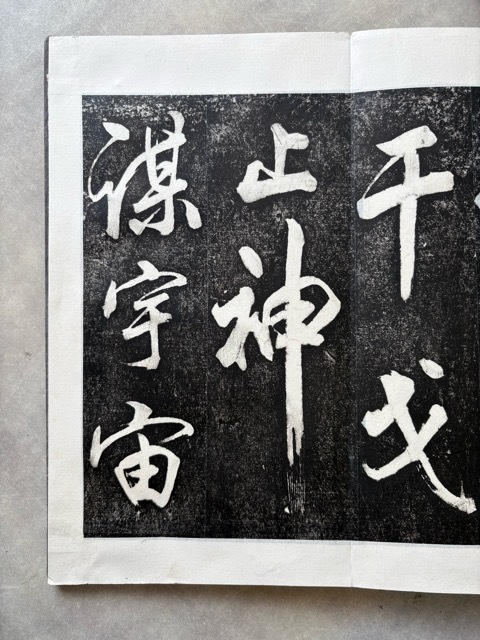 干戈
止神
謀宇宙